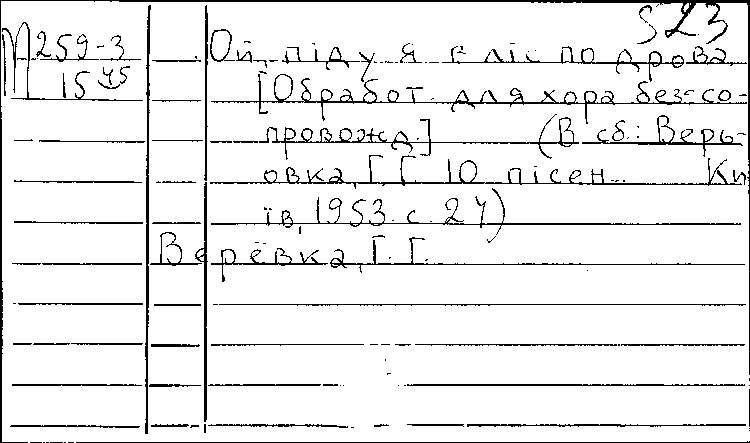 523
М 259-3 Ой, піду я в ліс по дрова.
15 45 [Обработ. для хора без со-
провожд.] (В сб.: Верь-
овка, Г.Г. 10 пісен. Ки
їв, 1953. с. 24)
Верёвка, Г.Г.